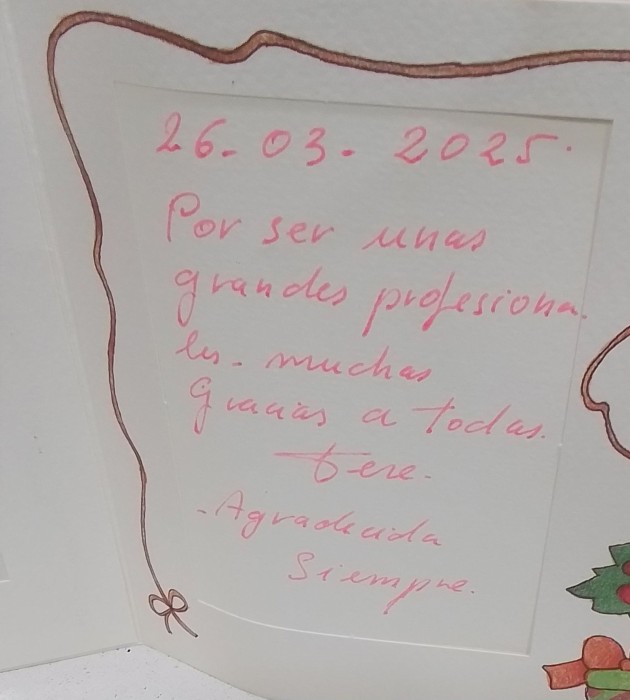 26-03-2025.
Por ser unas
grandes profesiona-
les. muchas
gracias a todas.
Tere.
-Agradecida
Siempre.